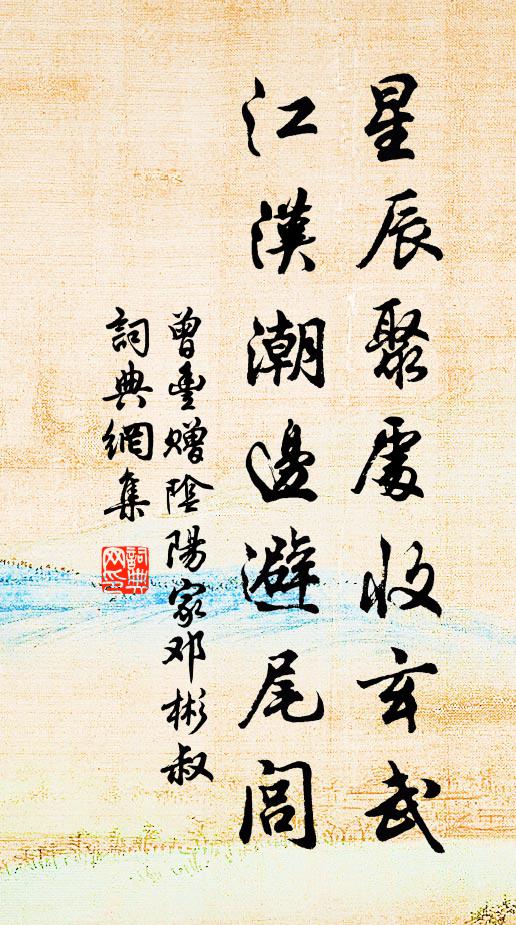 星辰聚處收玄武
江漢潮邊避尾閭
曾豐贈陰陽家邓彬叔
詞典網集